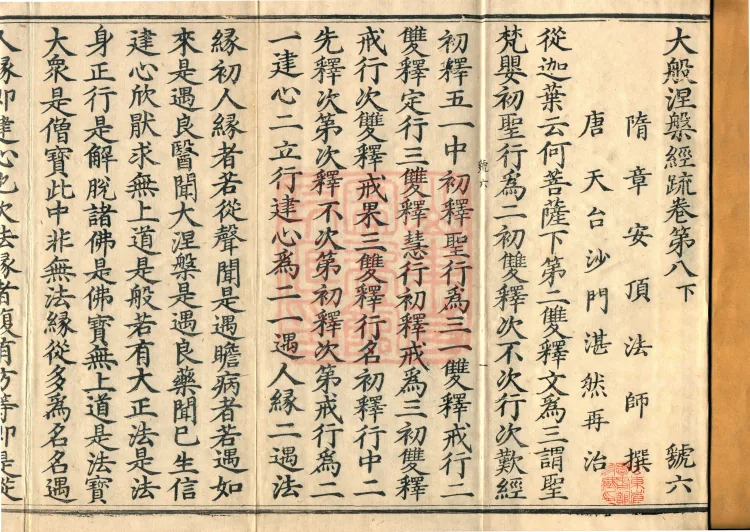 大般涅槃經疏卷第八下 號六
隋章安頂法師撰
唐天台沙門湛然再治
從迦葉云何菩薩下第二雙釋文為三謂聖
梵嬰初聖行為二初雙釋次不次行次歎經
號六
初釋五一中初釋聖行為三一雙釋戒行二
雙釋定行三雙釋慧行初釋戒為三初雙釋
戒行次雙釋戒果三雙釋行名初釋行中二
先釋次第次釋不次第初釋次第戒行為二
一建心二立行建心為二一遇人緣二遇法
緣初人緣者若從聲聞是遇瞻病者若遇如
來是遇良醫聞大涅槃是遇良藥聞已生信
建心欣猒求無上道是般若有大正法是法
身正行是解脫諸佛是佛寶無上道是法寶
大衆是僧寶此中非無法緣從多為名名遇
人緣即建心也次法緣者復有方等即是從